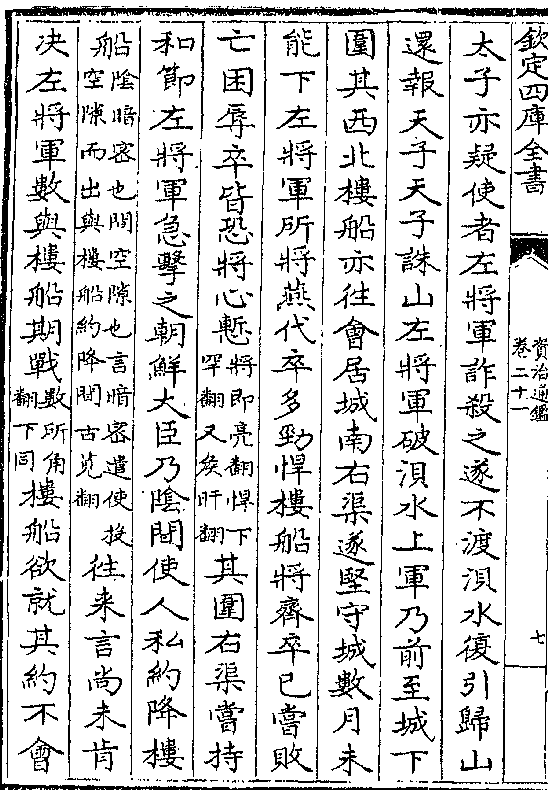 欽定四庫全書
資治通鑑
卷二十一
七
太子亦疑使者左將軍詐殺之遂不渡浿水復引歸山
還報天子天子誅山左將軍破浿水上軍乃前至城下
圍其西北樓船亦往會居城南右渠遂堅守城數月未
能下左將軍所將燕代卒多勁悍樓船將齊卒已嘗敗
亡困辱卒皆恐將心慙將即亮翻悍下罕翻又矦旰翻其圍右渠嘗持
和節左將軍急擊之朝鮮大臣乃陰間使人私約降樓
船陰暗密也間空隙也言暗密遣使投空隙而出與樓船約降間古莧翻往來言尚未肯
决左將軍數與樓船期戰數所角翻下同樓船欲就其約不會